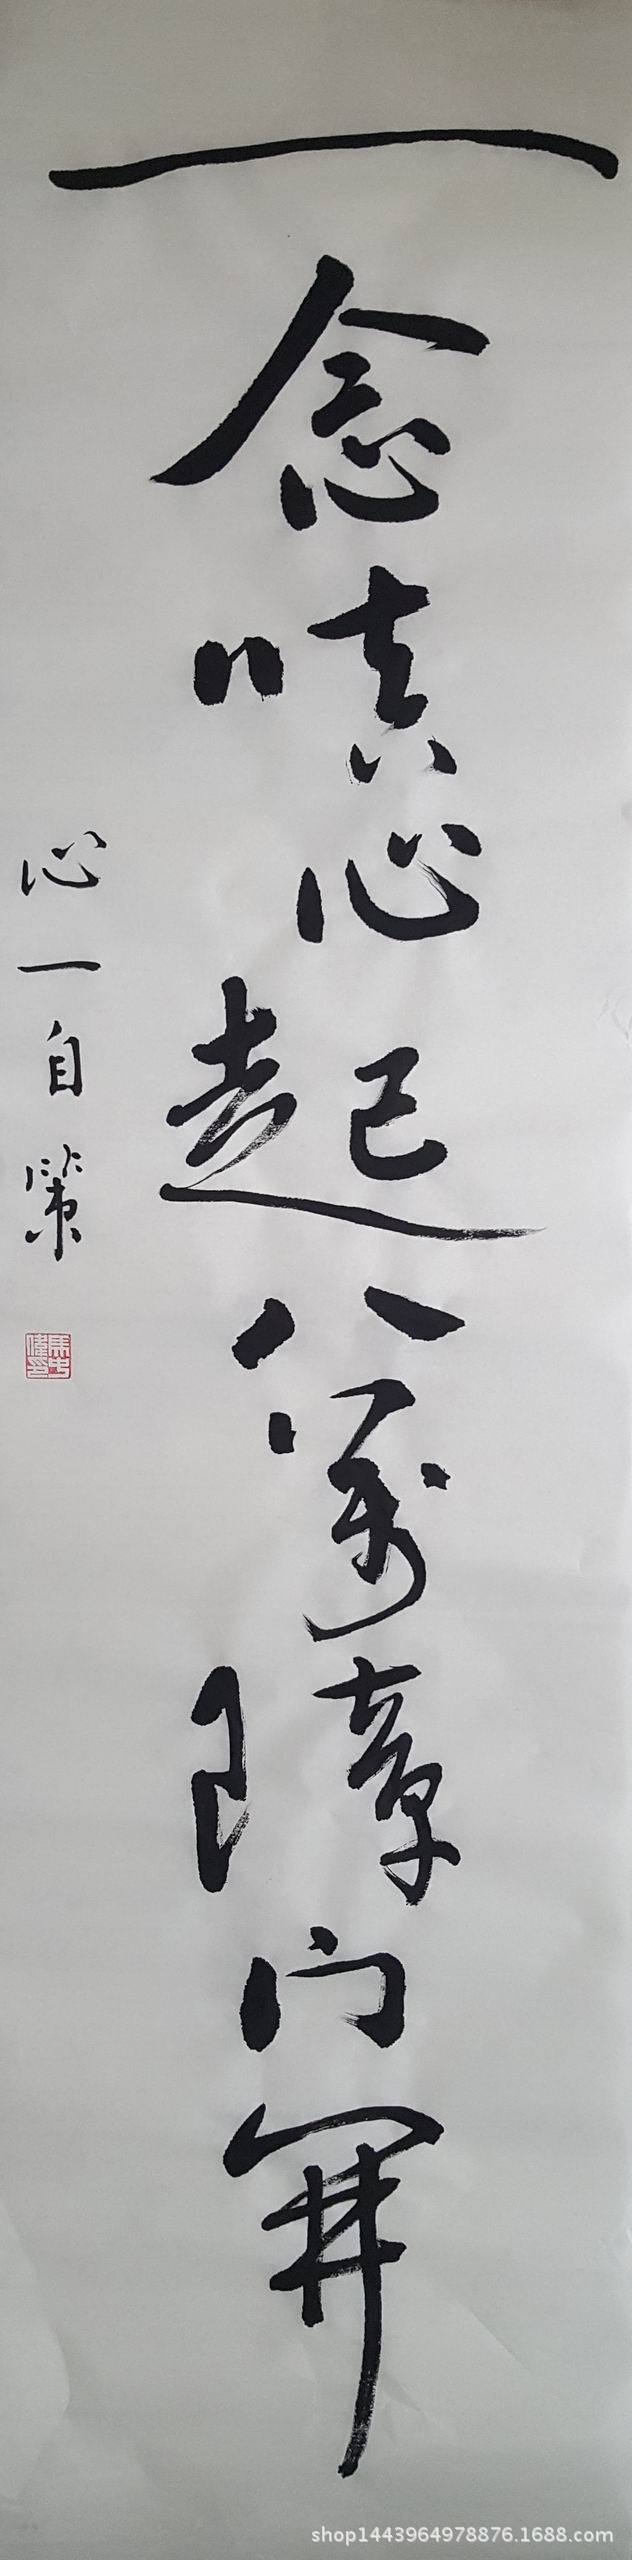 一念嗔心起八萬障门開
心一自策
shop1443964978876.1688.com